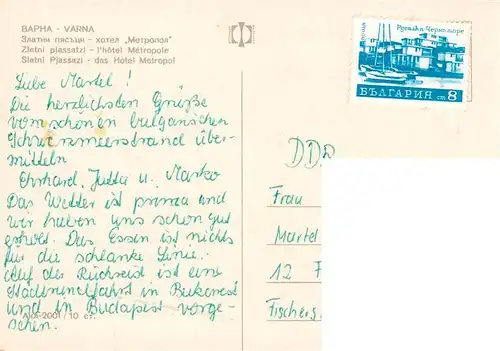 ВАРНА - VARNA
Златни пясъци - хотел „Метропол"
Zlatni plassatzi - l'hôtel Métropole
Slatni Pjassazi - das Hotel Metropol
Liebe Martel!
Die herzlichsten Grüße
vom schönen bulgarischen
Schwarzmeerstrand über-
mitteln
Ehrhard, Jutta u. Marko
Das Wetter ist prima und
wir haben uns schon gut
erholt. Das Essen ist nichts
für die schlanke Linie.
Auf der Rückreise ist eine
Städterundfahrt in Bukarest
und in Budapest vorge-
sehen.
АкИ-2001 / 10 ст.
поща
Русалка Черно море
БЪЛГАРИЯ ст 8
DDR
Frau
Martel
12 F
Fischers